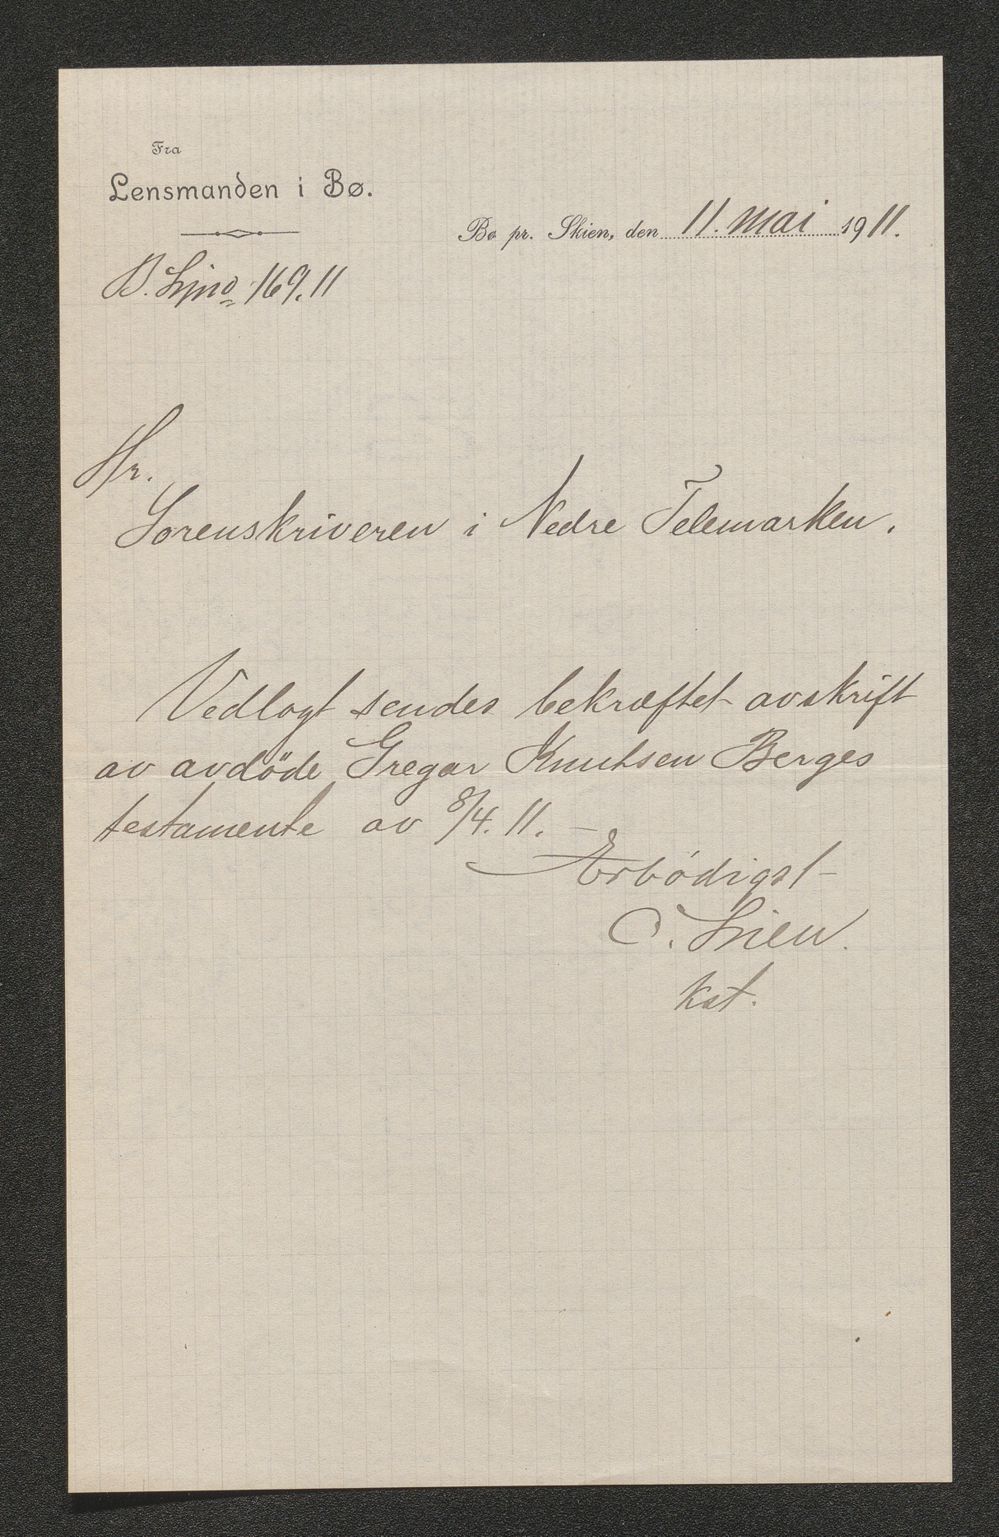 Fra
Lensmanden i Bø.
Bø pr. Skien, den 11. mai 1911.
B. Ljno 169.11
Hr.
Sorenskriveren i Nedre Telemarken.
Vedlagt sendes bekræftet avskrift
av avdöde Gregar Knutsen Berges
testamente av 8/4. 11. –
Ærbödigst
O. Lien.
kst.